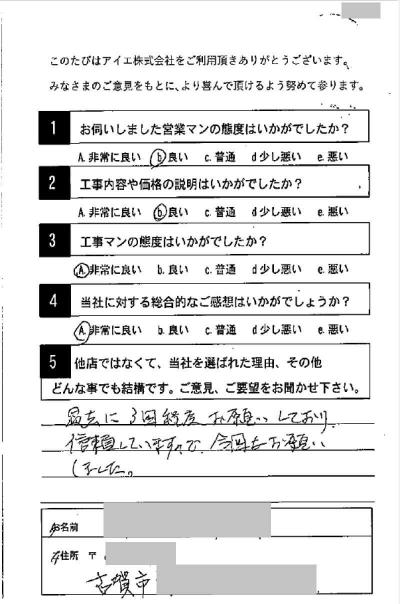 このたびはアイエ株式会社をご利用頂きありがとうございます。
みなさまのご意見をもとに、より喜んで頂けるよう努めて参ります。
1 お伺いしました営業マンの態度はいかがでしたか?
A.非常に良い b.良い c.普通 d少し悪い e.悪い
2 工事内容や価格の説明はいかがでしたか?
A.非常に良い b.良い c.普通 d少し悪い e.悪い
3 工事マンの態度はいかがでしたか?
A.非常に良い b.良い c.普通 d少し悪い e.悪い
4 当社に対する総合的なご感想はいかがでしょうか?
A.非常に良い b.良い c.普通 d少し悪い e.悪い
5 他店ではなくて、当社を選ばれた理由、その他
どんな事でも結構です。ご意見、ご要望をお聞かせ下さい。
過去に3回程度お願いしており
信頼していますので、今回もお願い
しました。
お名前
ご住所 〒
古賀市